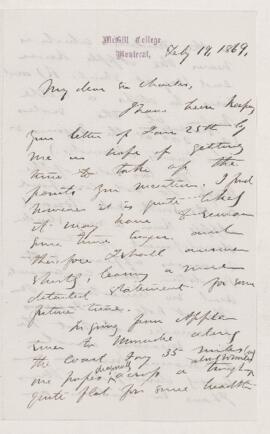 McGill College
Montreal,
Feby 19, 1869.
My dear Sir Charles,
I have been keeping
your letter of Jan 25th by
me in hope of getting
time to take up the
points you mention. I find
however it is quite likely
it may have to remain
some time longer and
therefore I shall answer
shortly, leaving a more
detailed statement for some
future time.
In going from Apple
river to Minudie along
the coast say 35 miles
one passes diagonally across a trough
quite flat for some